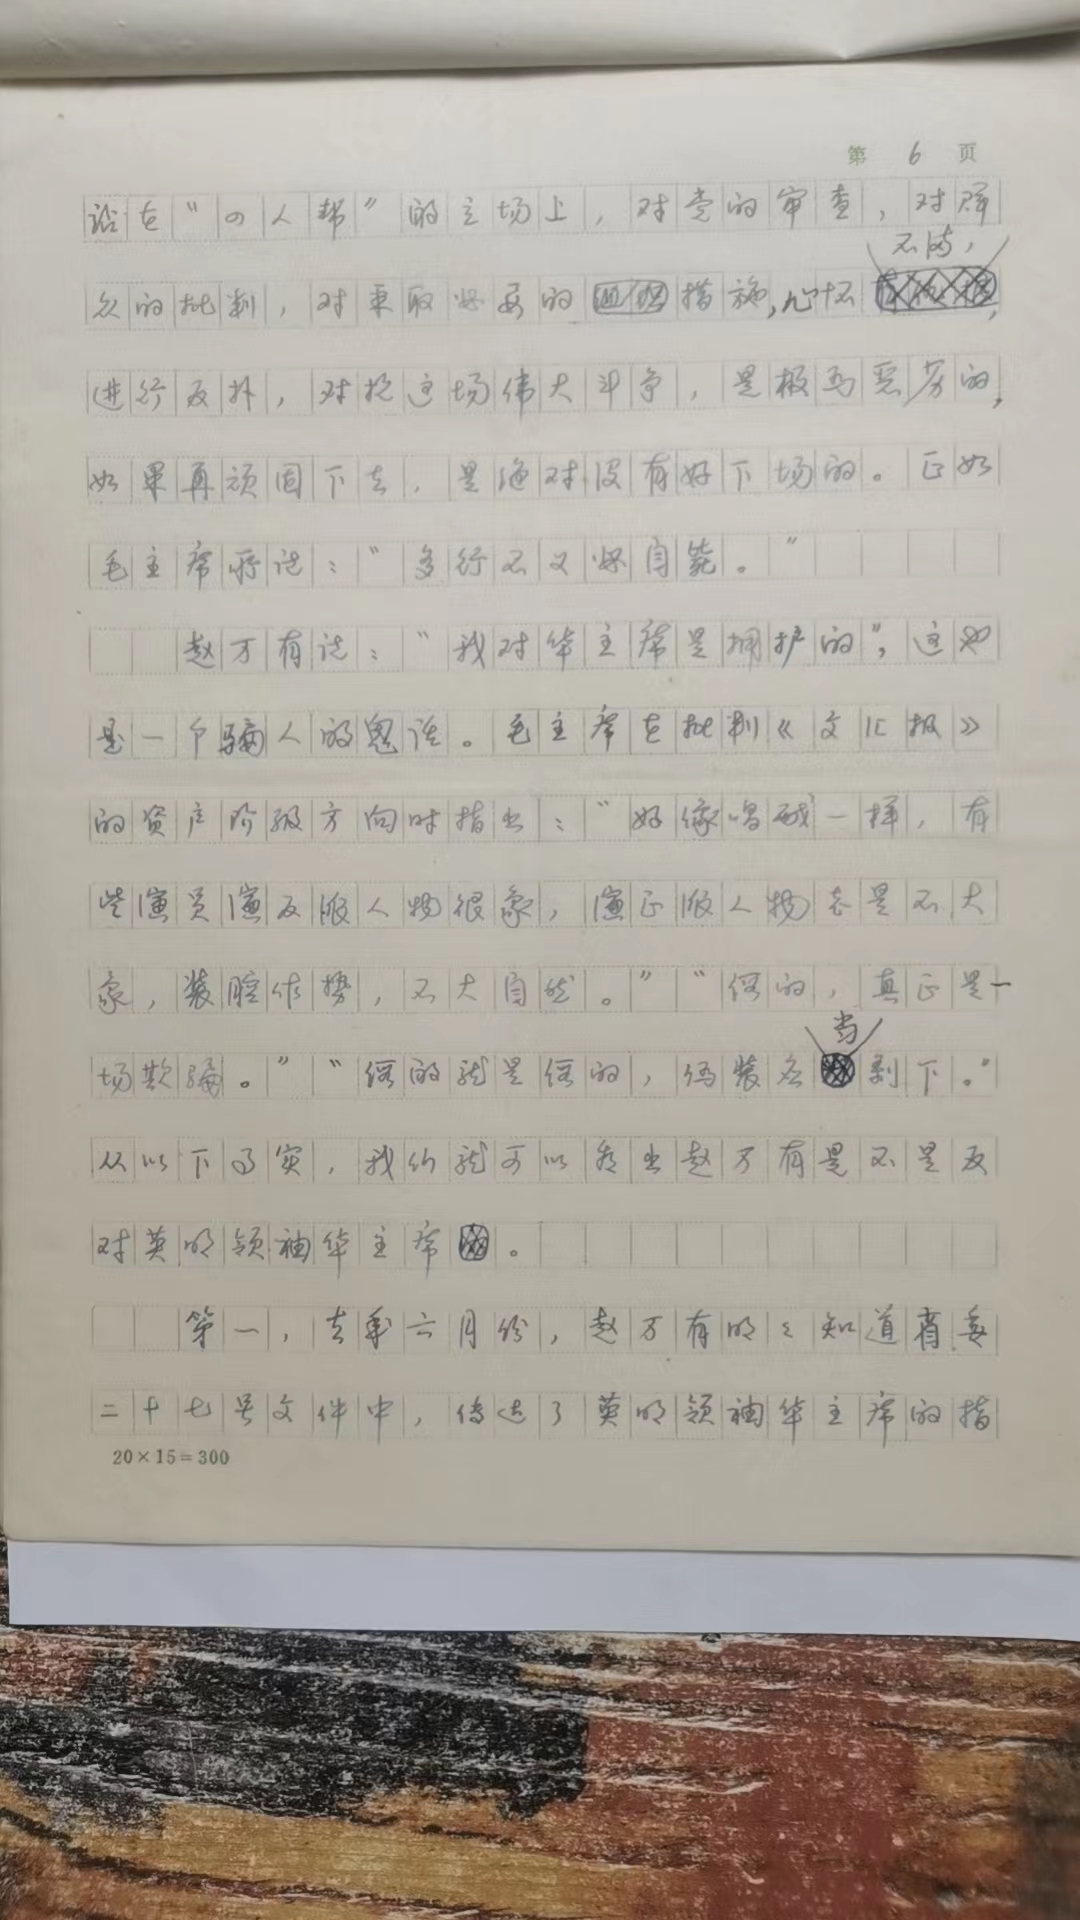 第 6 页
站在“四人帮”的立场上，对党的审查，对群
不满，
众的批判，对采取必要的措施，心怀
进行反扑，对抗这场伟大斗争，是极为恶劣的，
如果再顽固下去，是绝对没有好下场的。正如
毛主席所说：“多行不义必自毙。”
赵万有说：“我对华主席是拥护的”，这也
是一个骗人的鬼话。毛主席在批判《文汇报》
的资产阶级方向时指出：“好像唱戏一样，有
些演员演反派人物很象，演正派人物老是不大
象，装腔作势，不大自然。”“假的，真正是一
当
场欺骗。”“假的就是假的，伪装应剥下。”
从以下事实，我们就可以看出赵万有是不是反
对英明领袖华主席。
第一，去年六月份，赵万有明々知道省委
二十七号文件中，传达了英明领袖华主席的指
20×15=300